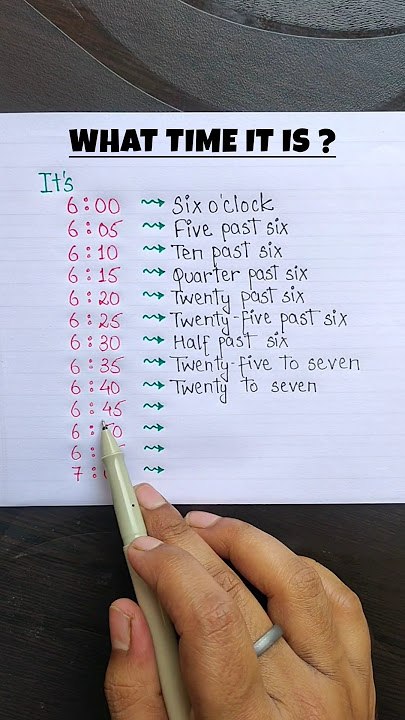 WHAT TIME IT IS ?
It's
6:00 ⇝ Six o'clock
6:05 ⇝ Five past six
6:10 ⇝ Ten past six
6:15 ⇝ Quarter past six
6:20 ⇝ Twenty past six
6:25 ⇝ Twenty-five past six
6:30 ⇝ Half past six
6:35 ⇝ Twenty-five to seven
6:40 ⇝ Twenty to seven
6:45 ⇝
6: ⇝
6: ⇝
7: ⇝